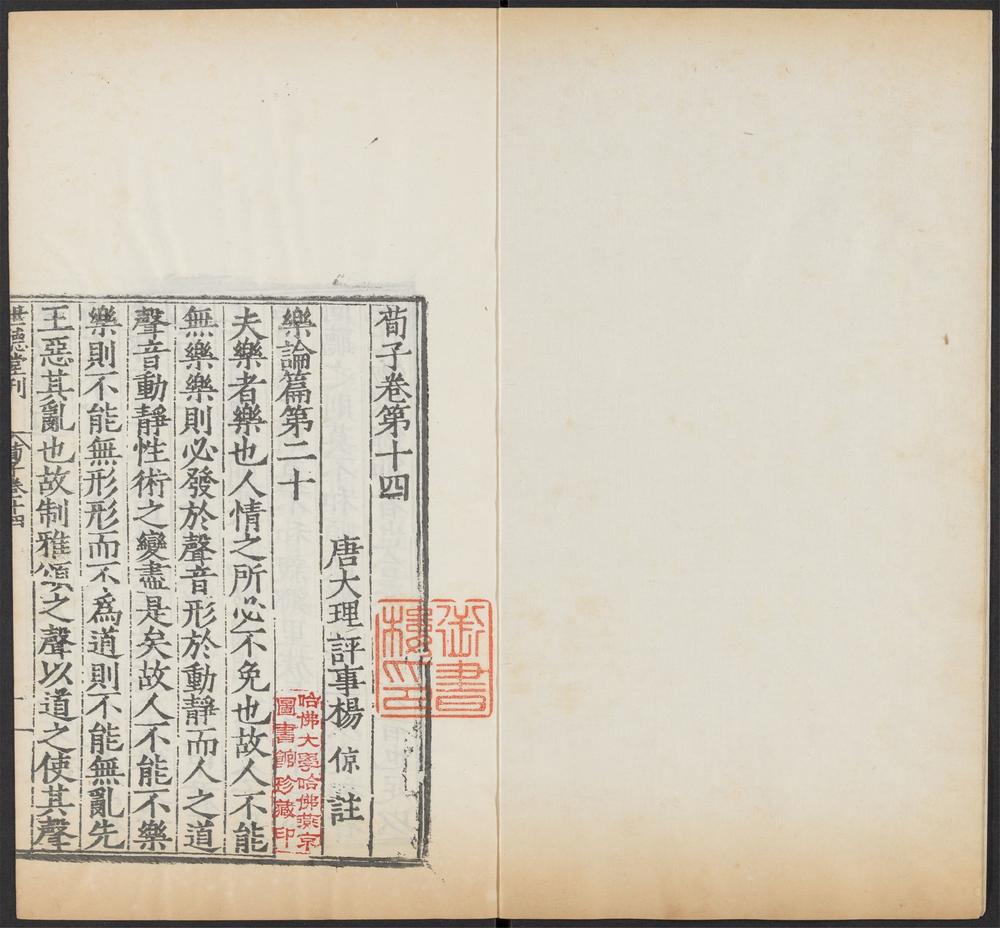 荀子卷第十四
唐大理評事楊倞註
樂論篇第二十
夫樂者樂也人情之所必不免也故人不能
無樂樂則必發於聲音形於動靜而人之道
聲音動靜性術之變盡是矣故人不能不樂
樂則不能無形形而不為道則不能無亂先
王惡其亂也故制雅頌之聲以道之使其聲
世德堂刊 荀子卷十四 一
御書樓印
哈佛大學哈佛燕京圖書館珍藏印